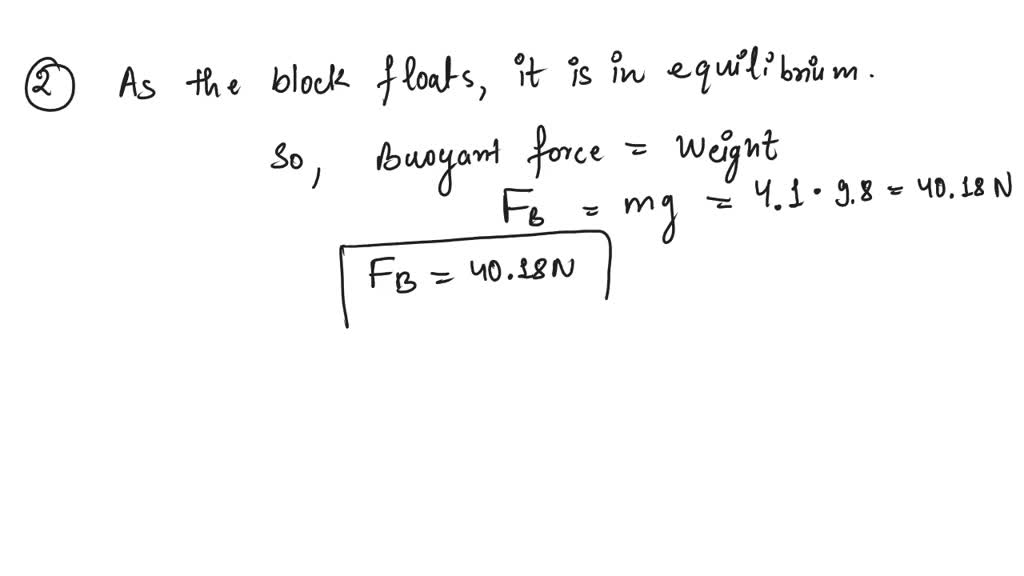 ② As the block floats, it is in equilibrium.
So, Buoyant force = Weight
F_B = mg = 4.1 · 9.8 = 40.18 N
F_B = 40.18 N